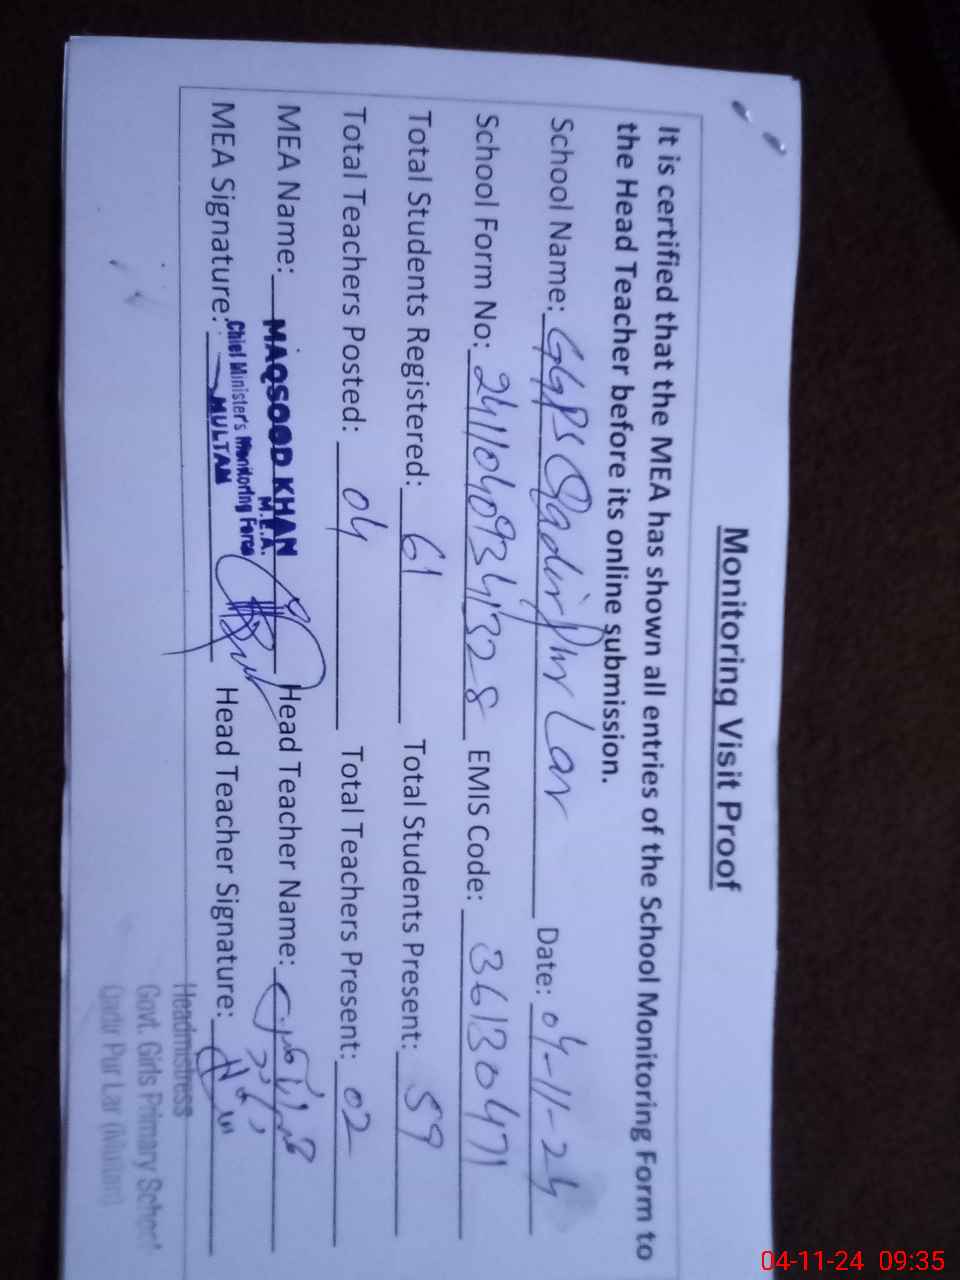 Monitoring Visit Proof
It is certified that the MEA has shown all entries of the School Monitoring Form to
the Head Teacher before its online submission.
School Name: GGPS Qadir Pur Lar Date: 04-11-24
School Form No: EMIS Code: 36130471
Total Students Registered: 61 Total Students Present: 59
Total Teachers Posted: 04 Total Teachers Present: 02
MEA Name: MAQSOOD KHAN Head Teacher Name:
M.E.A.
Chief Minister's Monitoring Force
MEA Signature: MULTAN Head Teacher Signature:
Headmistress
Govt. Girls Primary School
Qadir Pur Lar (Multan)
04-11-24 09:35